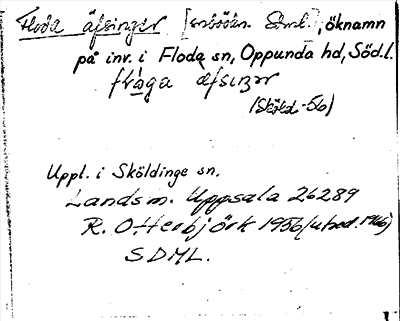 Floda äfsingar [inbördn. Söml.], öknamn
på inv. i Floda sn, Oppunda hd, Söd.l.
flɷga æfsiŋar
(Sköld -56)
Uppl. i Sköldinge sn.
Landsm. Uppsala 26289
R. Otterbjörk 1956 (utred. 1966)
SDML.